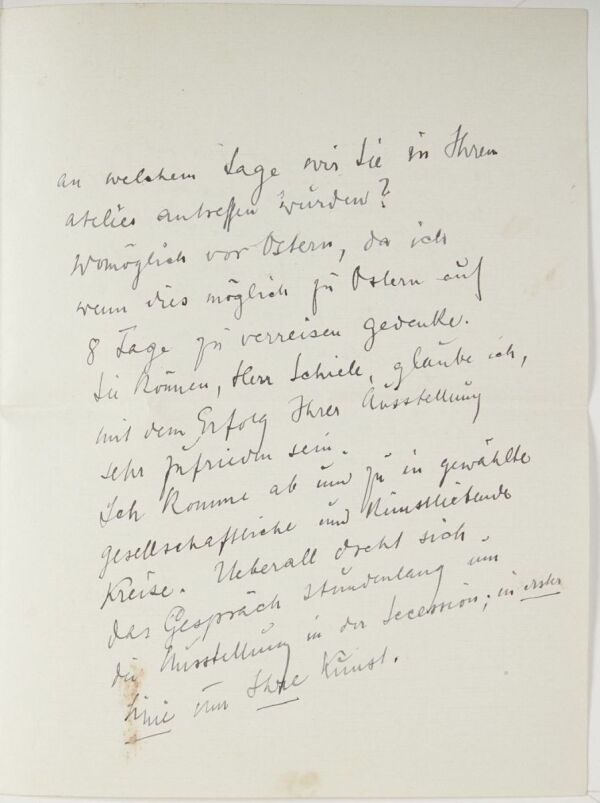 an welchem Tage wir Sie in Ihrem
atelier antreffen würden?
Womöglich vor Ostern, da ich
wenn dies möglich zu Ostern auf
8 Tage zu verreisen gedenke.
Sie können, Herr Schiele, glaube ich,
mit dem Erfolg Ihrer Ausstellung
sehr zufrieden sein.
Ich komme ab und zu in gewählte
gesellschaftliche und Kunstliebende
Kreise. Ueberall dreht sich
das Gespräch stundenlang um
die Ausstellung in der Secession; in erster
Linie um Ihre Kunst.